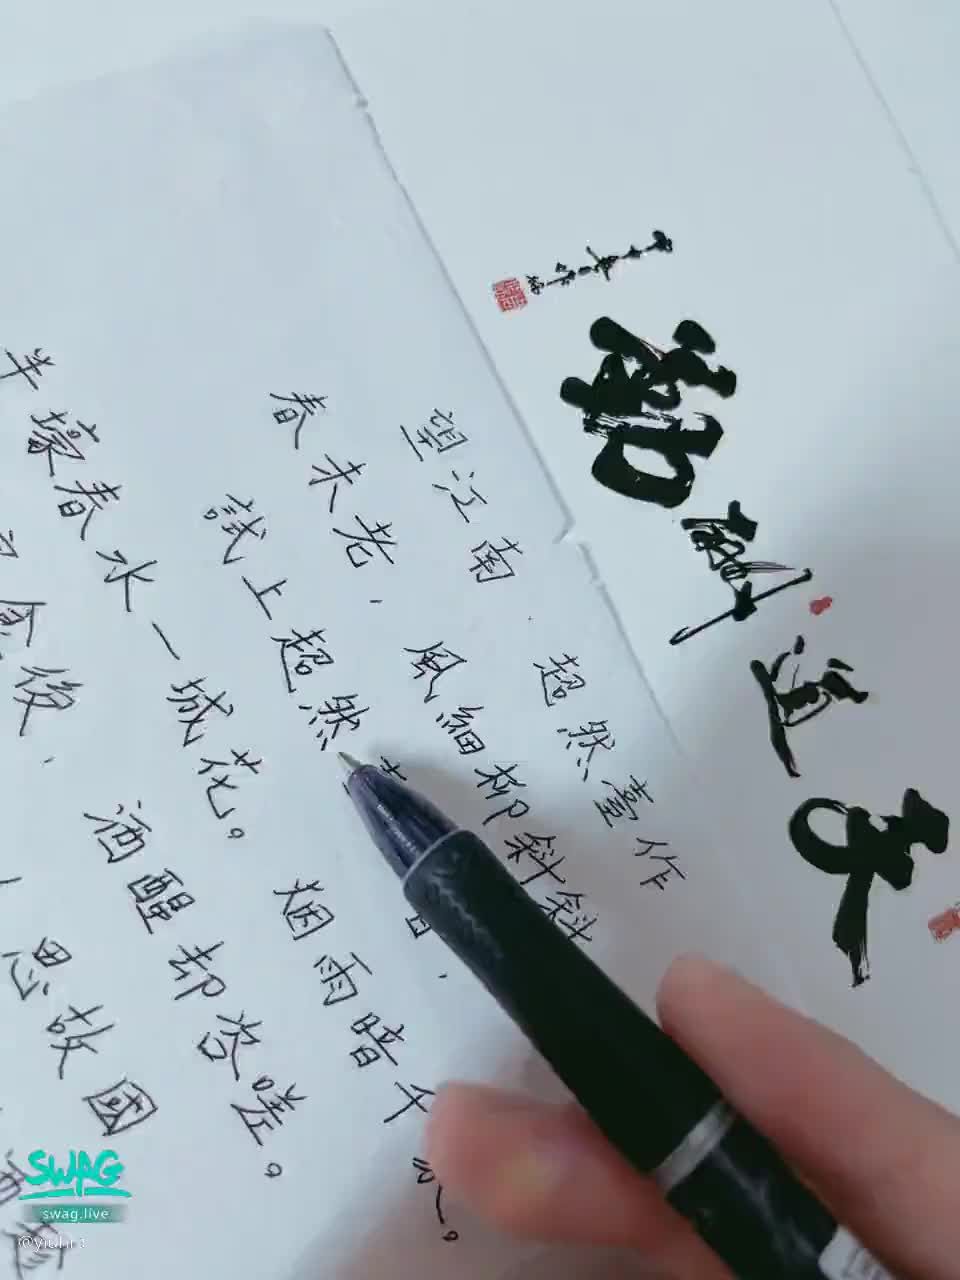 天道酬勤
望江南·超然臺作
春未老，風細柳斜斜
試上超然
半壕春水一城花。烟雨暗千家。
食後，酒醒却咨嗟。
思故國
SWAG
swag.live